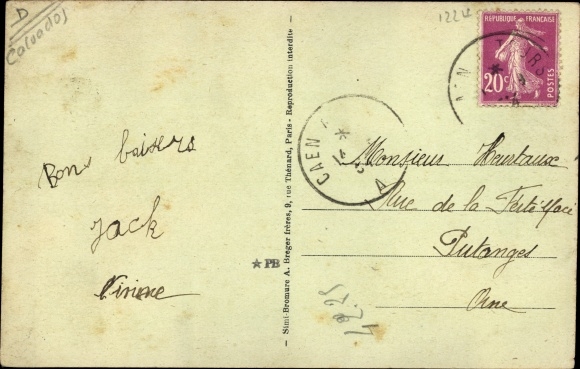 D
Calvados
1224
RÉPUBLIQUE FRANÇAISE
20c
POSTES
CAEN
A
Bons baisers
Jack
Monsieur Heurtaux
Rue de la Ferté Macé
Putanges
Orne
★ PB
Simi-Bromure A. Breger frères, 9, rue Thénard, Paris - Reproduction interdite